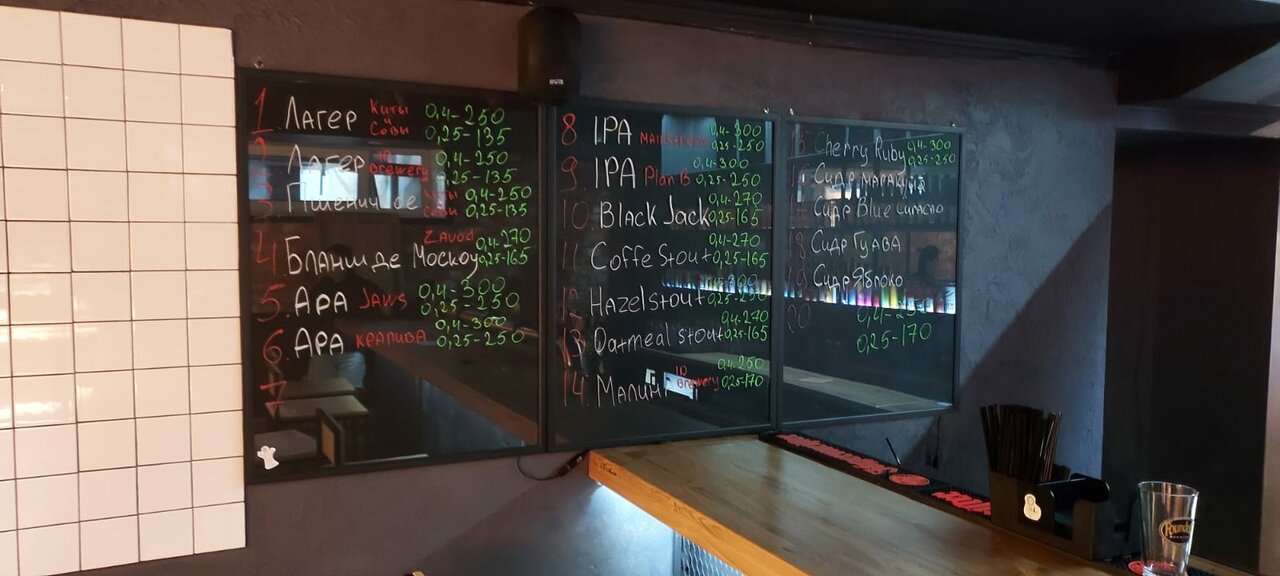 1 Лагер Киты и Совы 0,4-250
0,25-135
2 Лагер ID Brewery 0,4-250
0,25-135
3 Пшеничное Киты Совы 0,4-250
0,25-135
4 Бланш де Москоу Zavod 0,4-270
0,25-165
5. APA Jaws 0,4-300
0,25-250
6. APA крапива 0,4-300
0,25-250
7
8 IPA 0,4-300
0,25-250
9. IPA Plan B 0,4-300
0,25-250
10. Black Jack 0,4-270
0,25-165
11 Coffe Stout 0,4-270
0,25-165
12 Hazelstout 0,4-300
0,25-250
13 Oatmeal stout 0,4-270
0,25-165
14. ID Brewery 0,4-250
0,25-170
Cherry Ruby 0,4-300
0,25-250
Сидр
Сидр Blue
18 Сидр Гуава
19 Сидр Яблоко
20 0,4-250
0,25-170